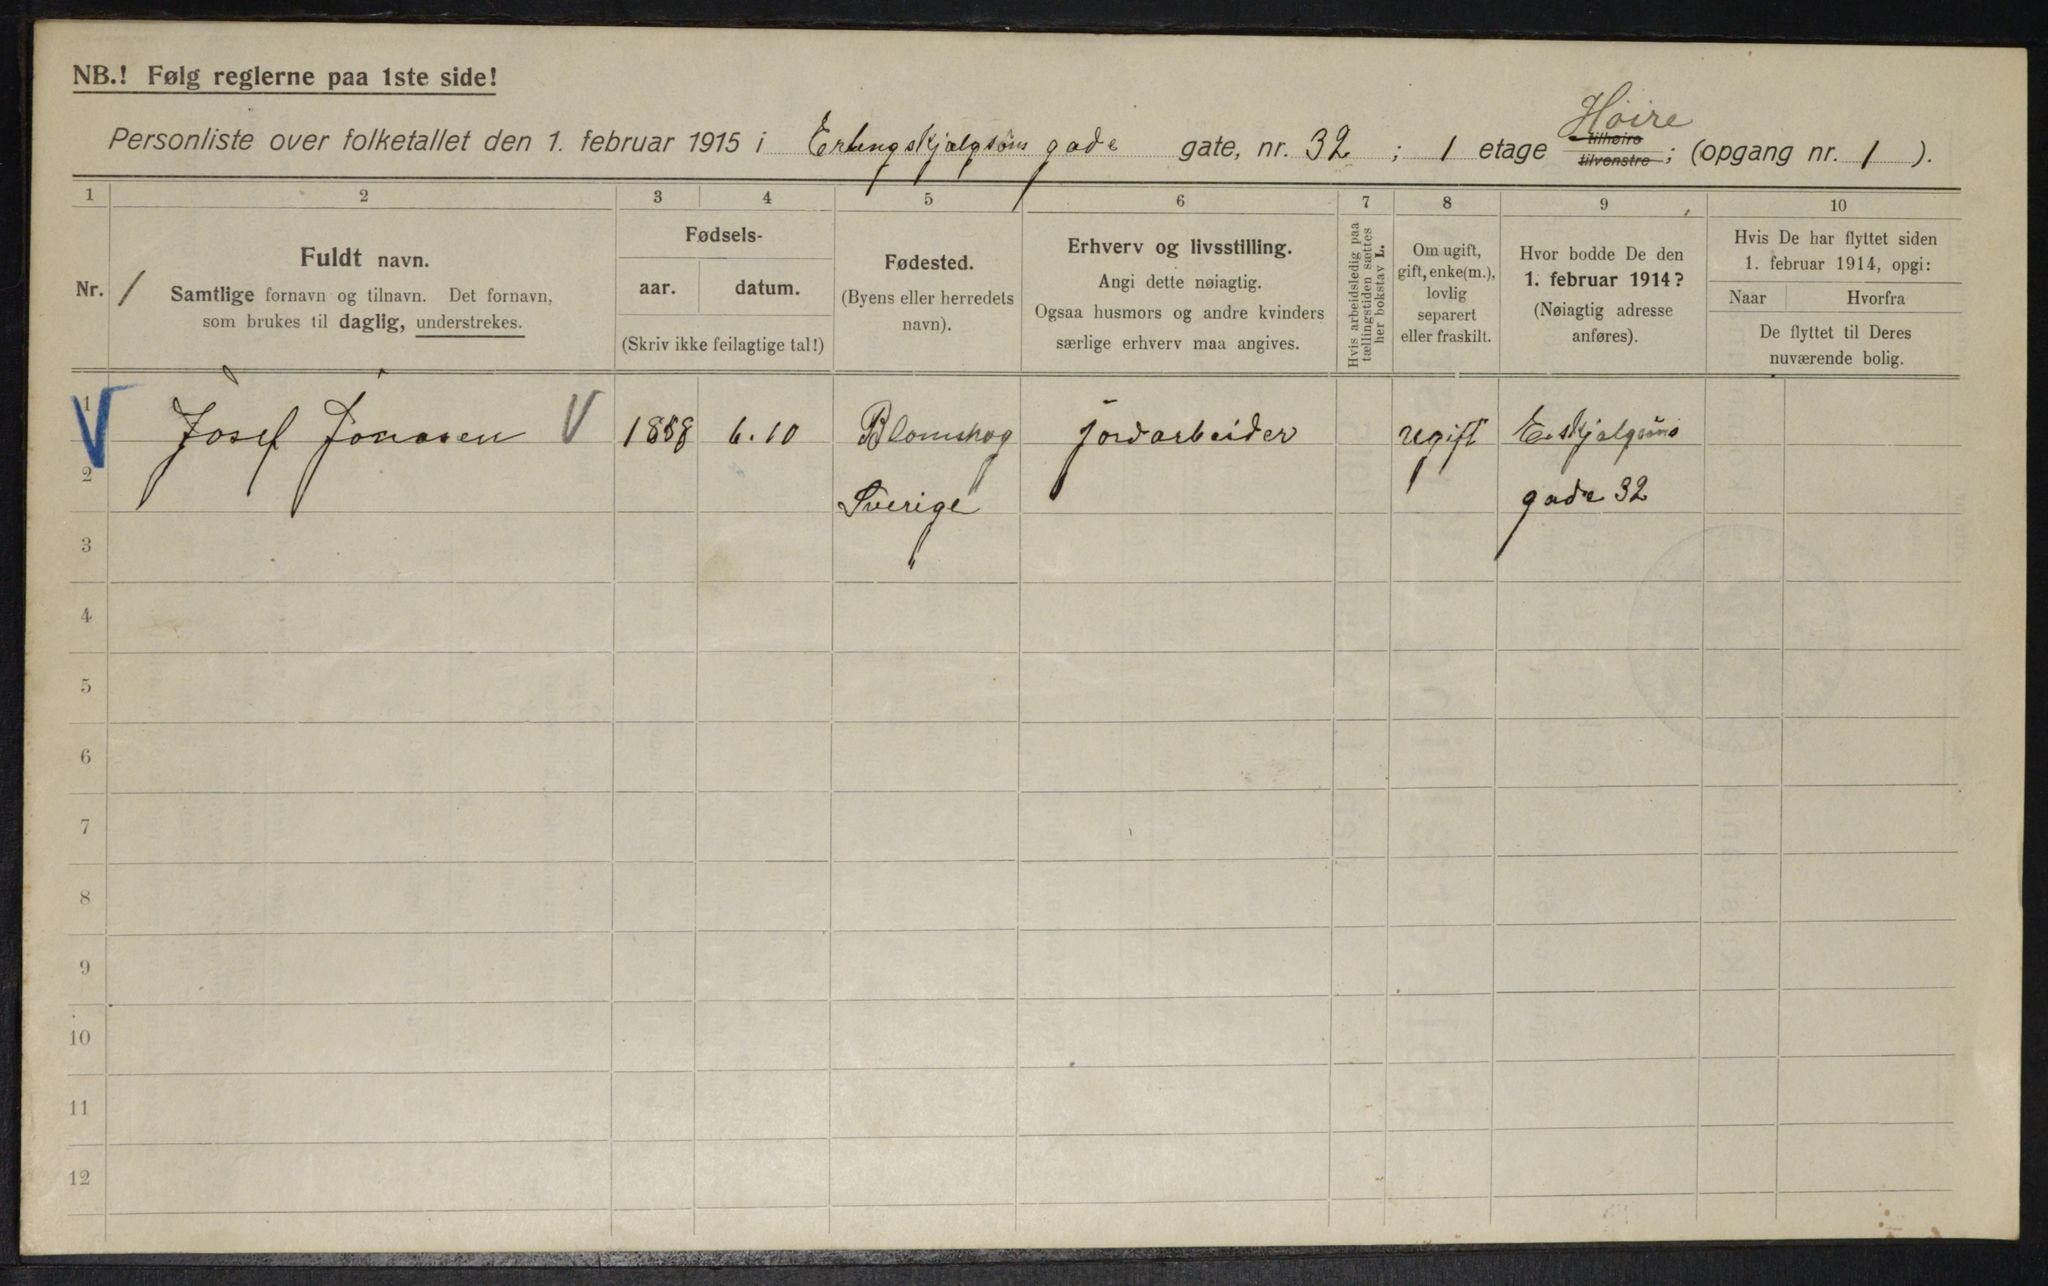 NB.! Følg reglerne paa 1ste side!
Høire
Personliste over folketallet den 1. februar 1915 i Erlingskjalgsöns gade gate, nr. 32 ; 1 etage tilhøire tilvenstre ; (opgang nr. 1 ).
1 2 3 4 5 6 7 8 9 10
Nr. 1
Fuldt navn.
Samtlige fornavn og tilnavn. Det fornavn,
som brukes til daglig, understrekes.
Fødsels-
aar. datum.
(Skriv ikke feilagtige tal!)
Fødested.
(Byens eller herredets
navn).
Erhverv og livsstilling.
Angi dette nøiagtig.
Ogsaa husmors og andre kvinders
særlige erhverv maa angives.
Hvis arbeidsledig paa
tællingstiden sættes
her bokstav L.
Om ugift,
gift, enke(m.),
lovlig
separert
eller fraskilt.
Hvor bodde De den
1. februar 1914?
(Nøiagtig adresse
anføres).
Hvis De har flyttet siden
1. februar 1914, opgi:
Naar Hvorfra
De flyttet til Deres
nuværende bolig.
1 V Josef Jonasen V 1858 6.10 Blomskog jordarbeider ugift E. skjalgsöns
2 Sverige gade 32
3
4
5
6
7
8
9
10
11
12